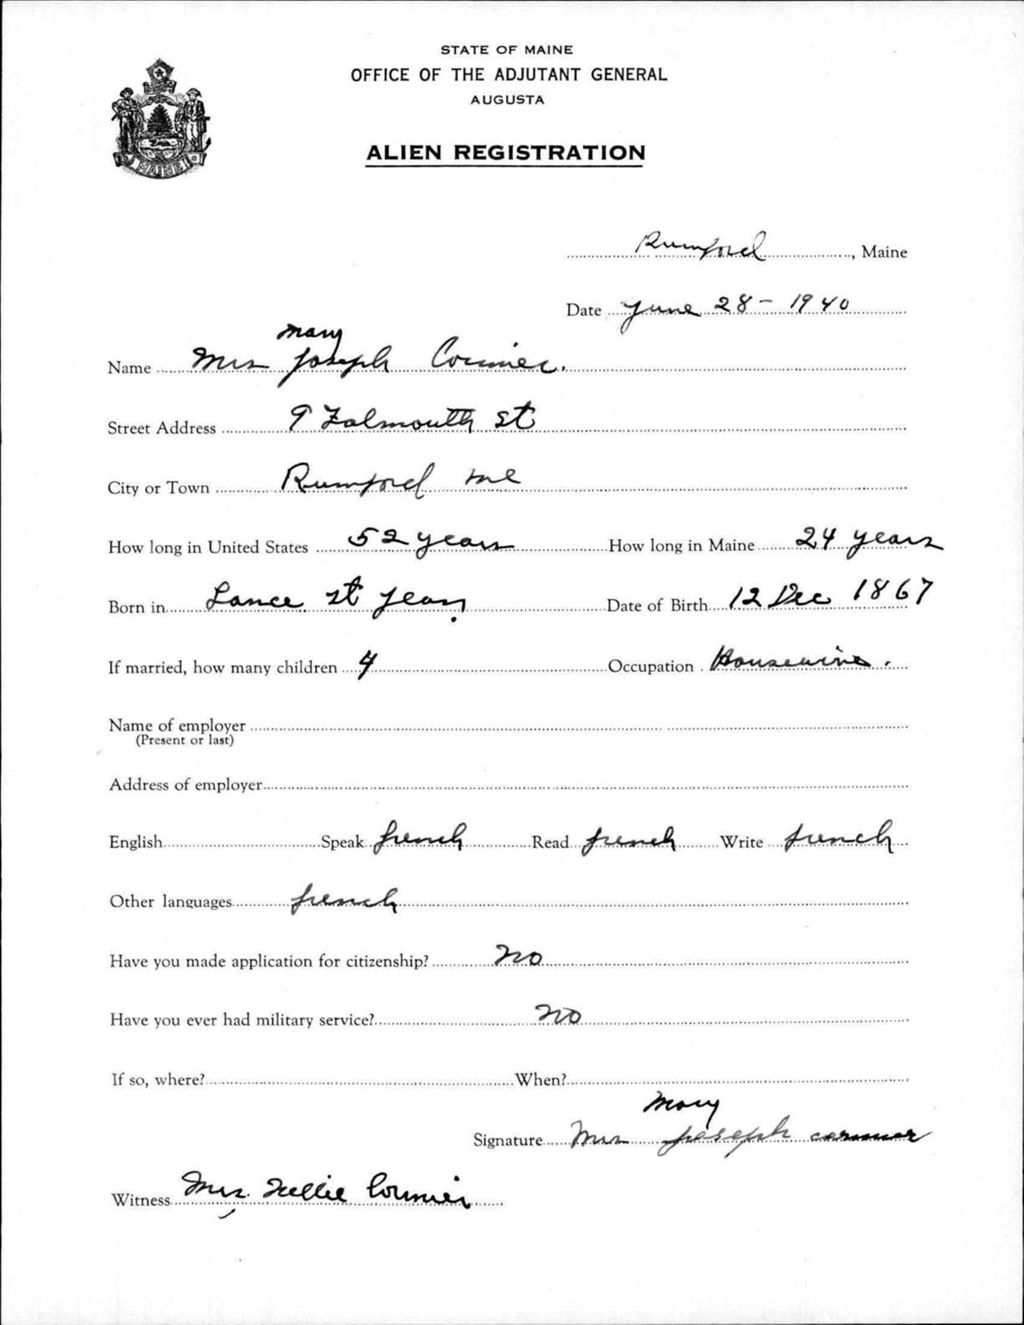 STATE OF MAINE
OFFICE OF THE ADJUTANT GENERAL
AUGUSTA
ALIEN REGISTRATION
Rumford, Maine
Date June 28 - 1940
Mary
Name Mrs Joseph Cormier.
Street Address 9 Falmouth St
City or Town Rumford Me
How long in United States 52 years How long in Maine 24 years
Born in Lance St Jean Date of Birth 12 Dec 1867
If married, how many children 4 Occupation Housewife.
Name of employer
(Present or last)
Address of employer
English Speak french Read french Write french
Other languages french
Have you made application for citizenship? No
Have you ever had military service? No
If so, where? When?
Mary
Signature Mrs Joseph Cormier
Witness Mrs. Nellie Cormier